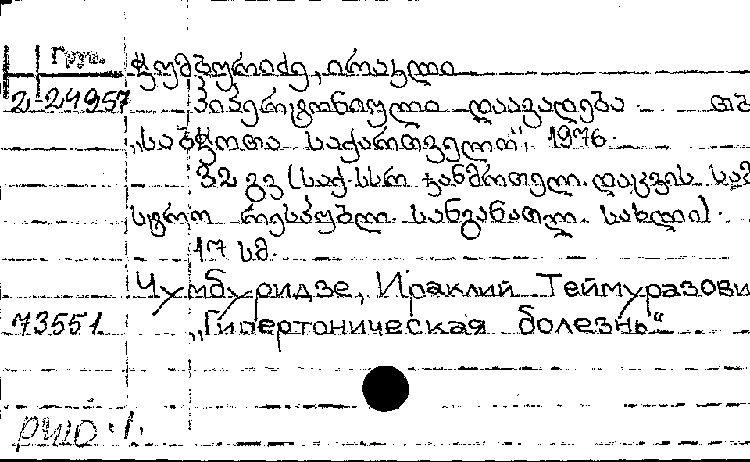 Груз.
ჭუმბურიძე, ირაკლი
2-24957 ჰიპერტონიული დაავადება. თბ
„საბჭოთა საქართველო", 1976.
32 გვ (საქ. სსრ ჯანმრთელ. დაცვის სამ
სტრო რესპუბლ. სანგანათლ. სახლი).
17 სმ.
Чумбуридзе, Ираклий Теймуразови
73551 „Гипертоническая болезнь"